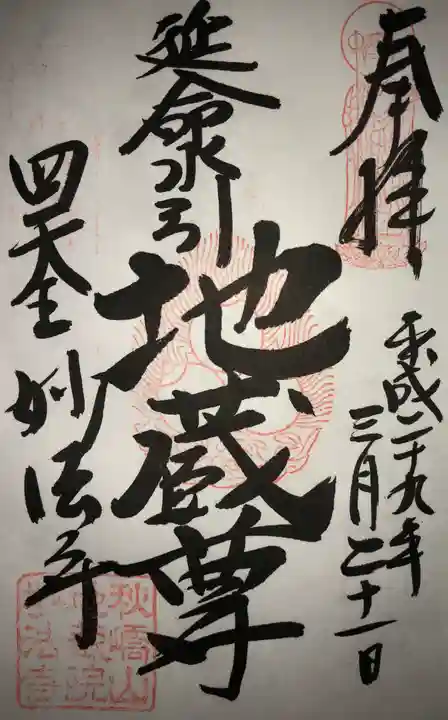 奉拝
平成二十九年
三月二十一日
延命水引
地蔵尊
四天王 妙法寺
地蔵院
妙法寺